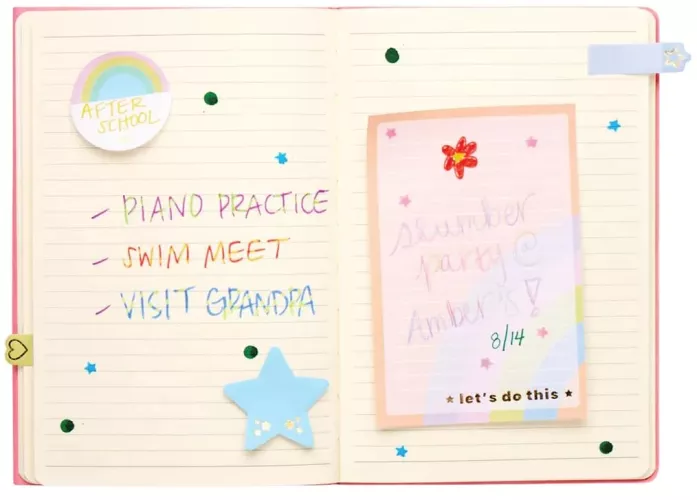 AFTER
SCHOOL
- PIANO PRACTICE
- SWIM MEET
- VISIT GRANDPA
slumber
party @
Amber's!
8/14
let's do this